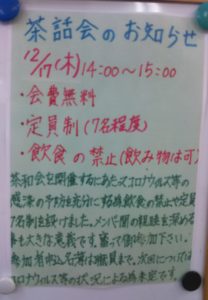 茶話会のお知らせ
12/17(木)14:00〜15:00
・会費無料
・定員制(7名程度)
・飲食の禁止(飲み物は可)
茶和会を開催するにあたってコロナウィルス等の
感染の予防を充分にする為飲食の禁止や定員
7名制を設けました。メンバー間の親睦を深める
事も大きな意義です。奮って御参加下さい。
参加者申込名簿は職員まで。次回については
コロナウィルス等の状況による為未定です。